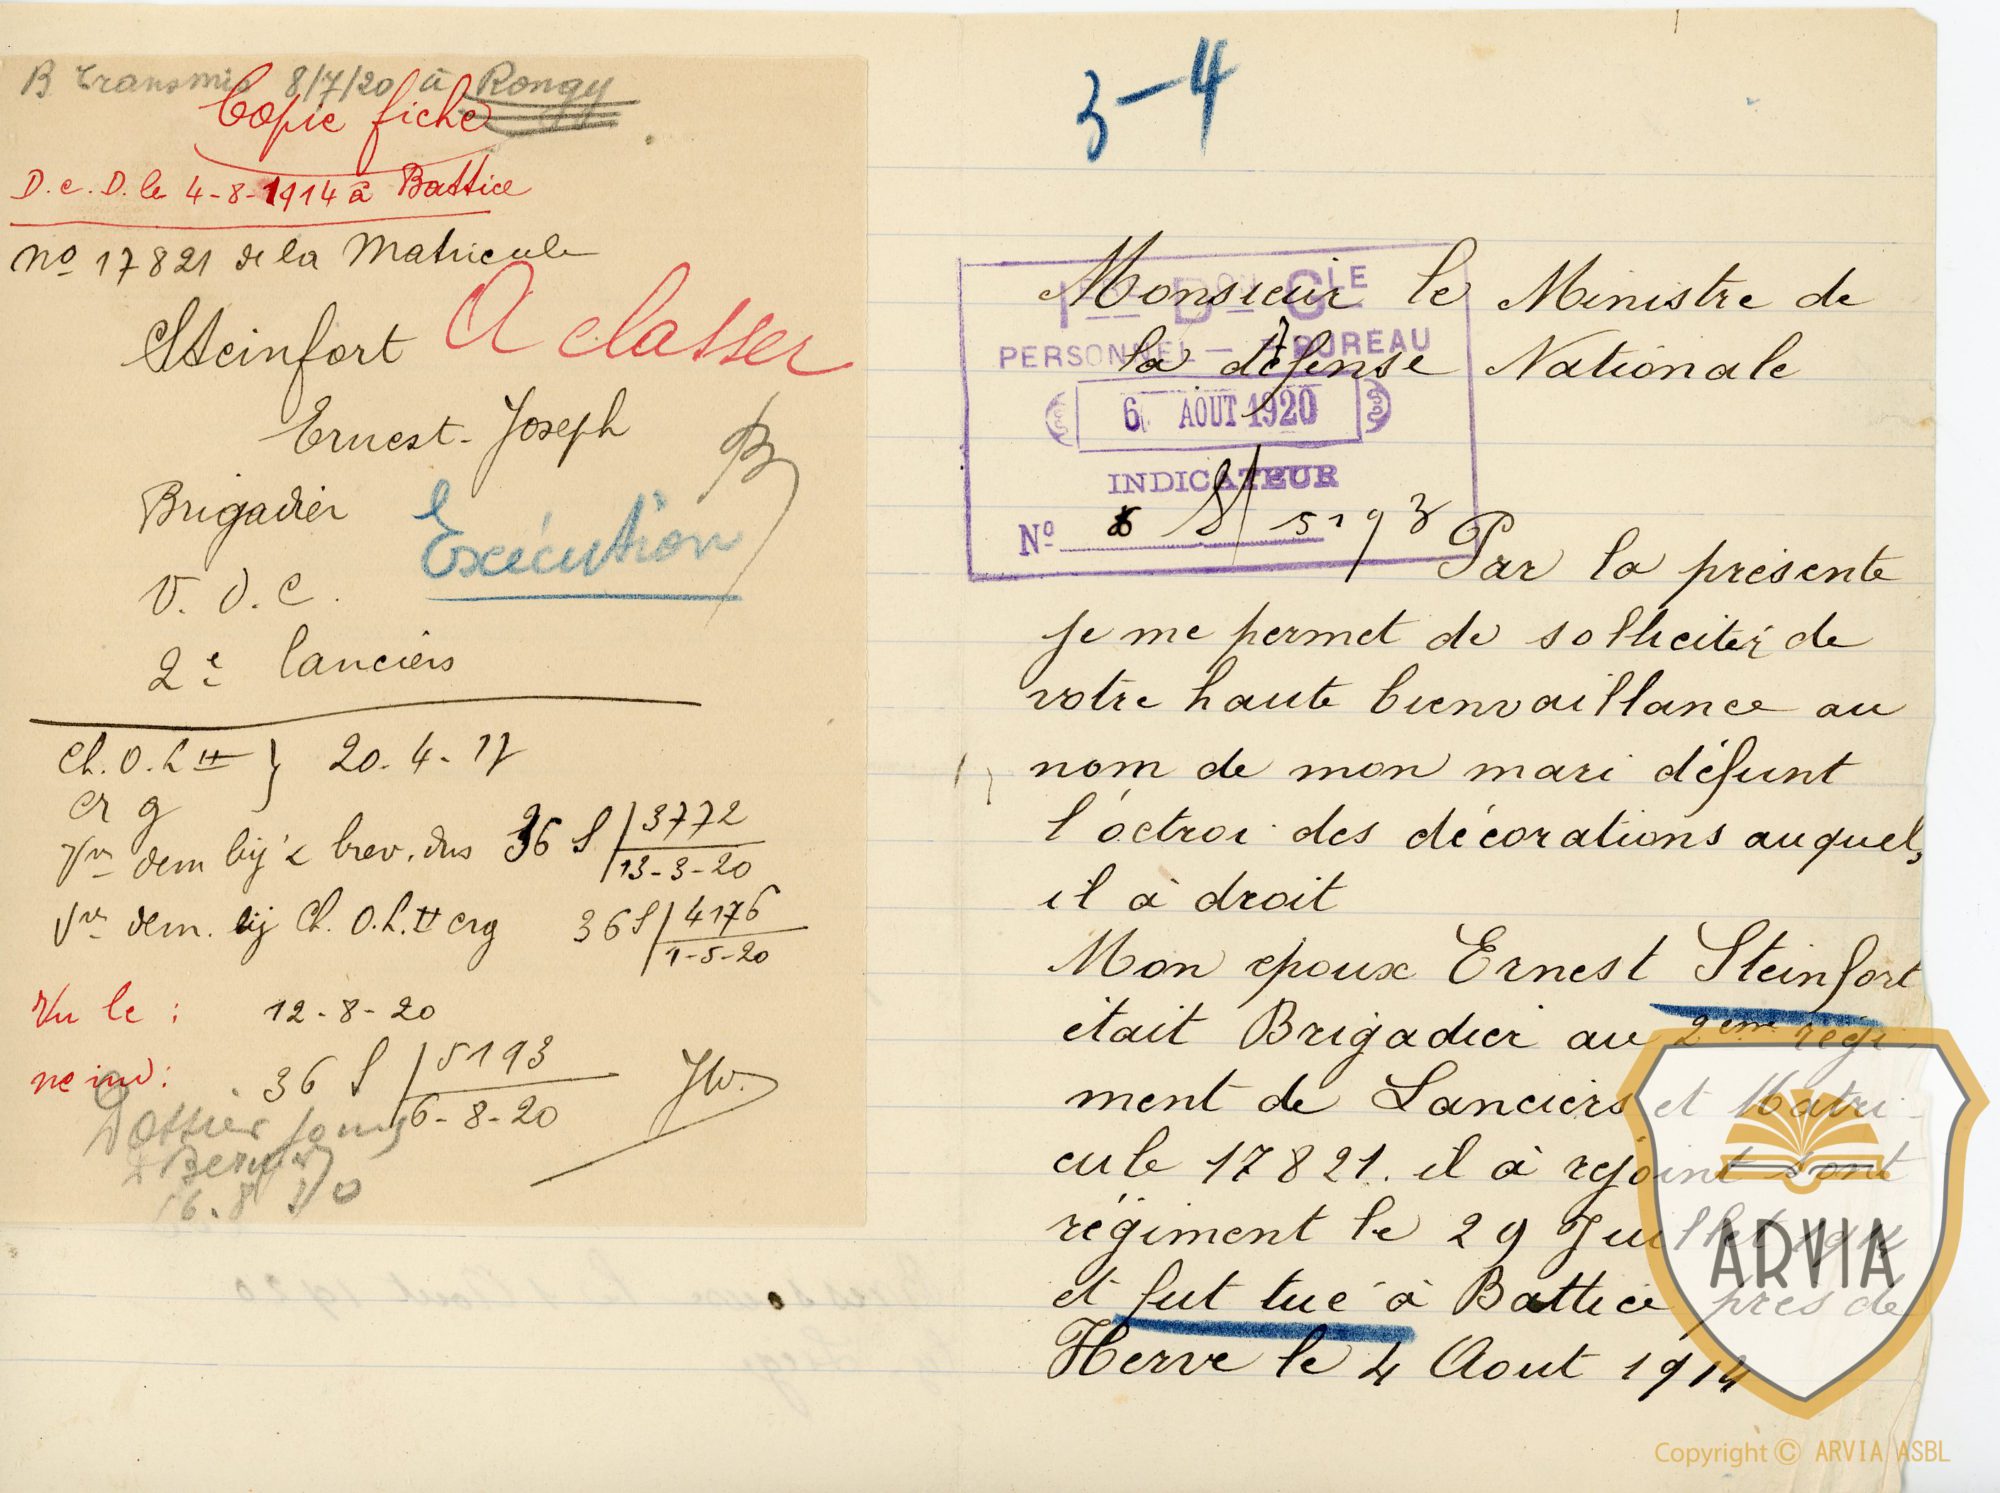 B Transmis 8/7/20 à Rongy
Copie fiche
D.c.D. le 4-8-1914 à Battice
No 17821 de la Matricule
Steinfort A classer
Ernest-Joseph
Brigadier
Exécution
V.O.C.
2e lanciers
Ch. O. L II } 20.4.17
cr g
Vr dem bij 2 brev. dus 36 S/ 3772
13-3-20
Vr dem. bij Ch. O. L. II crg 36 S/ 4176
1-5-20
Vu le : 12-8-20
ne ind : 36 S / 5193
6-8-20
Dossier
16.8.20
3-4
1re Don Gle
PERSONNEL — BUREAU
6 AOUT 1920
INDICATEUR
No S/ 5193
Monsieur le Ministre de
la défense Nationale
Par la présente
je me permet de solliciter de
votre haute bienvaillance au
nom de mon mari défunt
l'octroi des décorations auquels
il à droit
Mon epoux Ernest Steinfort
était Brigadier au 2eme régi
ment de Lanciers et Matri-
cule 17821. il à rejoint sont
régiment le 29 Juillet 1914
et fut tué à Battice près de
Herve le 4 Aout 1914
ARVIA
Copyright © ARVIA ASBL